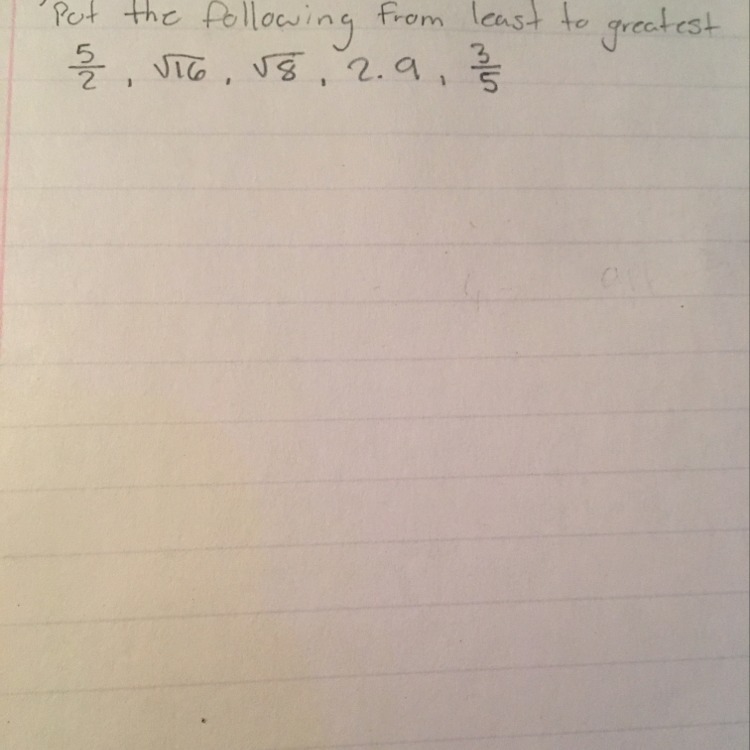 Put the following from least to greatest
5/2, √16, √8, 2.9, 3/5